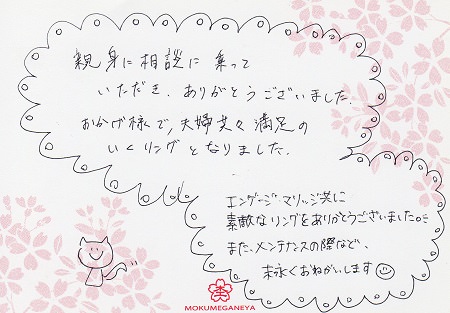 親身に相談に乗って
いただき、ありがとうございました.
おかげ様で、夫婦共々満足の
いくリングとなりました.
エンゲージ・マリッジ共に
素敵なリングをありがとうございました。
また、メンテナンスの際など、
末永くおねがいします
MOKUMEGANEYA